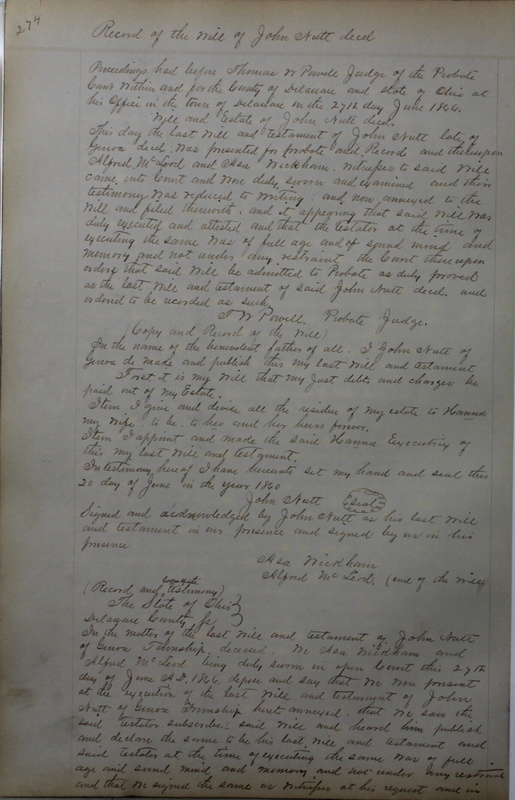 274
Record of the Will of John Nutt decd
Proceedings had before Thomas W Powell Judge of the Probate
Court within and for the County of Delaware and State of Ohio at
his Office in the town of Delaware on the 27th day June 1866.
Will and Estate of John Nutt decd.
This day the last Will and testament of John Nutt late of
Genoa decd. was presented for probate and Record and thereupon
Alfred McLeod and Asa Wickham. Witnesses to said Will
came into Court and were duly sworn and examined and their
testimony was reduced to writing, and now annexed to the
Will and filed therewith, and it appearing that said Will was
duly executed and attested and that the testator at the time of
executing the same was of full age and of sound mind and
memory and not under any restraint, the Court thereupon
orders that said Will be admitted to Probate as duly proved
as the last Will and testament of said John Nutt decd. and
ordered to be recorded as such.
T W Powell. Probate Judge.
(Copy and Record of the Will)
In the name of the benevolent father of all. I John Nutt of
Genoa do make and publish this my last Will and testament.
First it is my Will that my Just debts and charges be
paid out of my Estate.
Item I give and devise all the residue of my estate to Hanna
my wife. to be, to her and her heirs forever.
Item I appoint and made the said Hanna Executrix of
this my last Will and testament.
In testimony hereof I have hereunto set my hand and seal this
20 day of June in the year 1860
John Nutt (seal)
Signed and acknowledged by John Nutt as his last Will
and testament in our presence and signed by us in his
presence
Asa Wickham
Alfred McLeod. (end of the Will)
(Record and testimony)
The State of Ohio }
Delaware County ss }
In the matter of the last Will and testament of John Nutt
of Genoa Township, deceased. We Asa Wickham and
Alfred McLeod being duly sworn in open Court this 27th
day of June A.D. 1866, depose and say that we were present
at the execution of the last Will and testament of John
Nutt of Genoa Township hereto annexed. that we saw the
said testator subscribe said Will and heard him publish
and declare the same to be his last Will and testament and
said testator at the time of executing the same was of full
age and sound mind and memory and not under any restraint
and that we signed the same as witnesses at his request and in